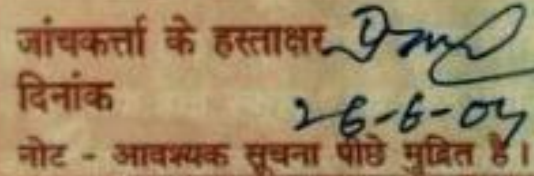 जांचकर्त्ता के हस्ताक्षर
दिनांक 26-6-04
नोट - आवश्यक सूचना पीछे मुद्रित है।